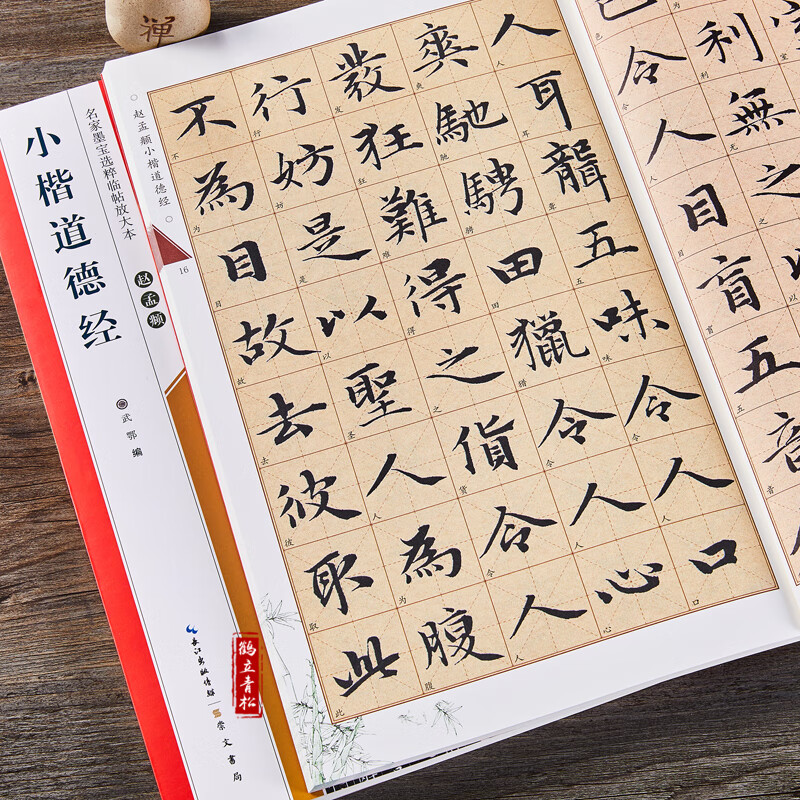 禅
名家墨宝选粹临帖放大本
小楷道德经
赵孟頫
武鄂 编
长江出版传媒
崇文书局
鹤立青松
赵孟頫小楷道德经
16
利無之以
利无之以
色令人目盲五音
色令人目盲五音
人耳聾五味令人口
人耳聋五味令人口
爽馳騁田獵令人心
爽驰骋田猎令人心
發狂難得之貨令人
发狂难得之货令人
行妨是以聖人為腹
行妨是以圣人为腹
不為目故去彼取此
不为目故去彼取此